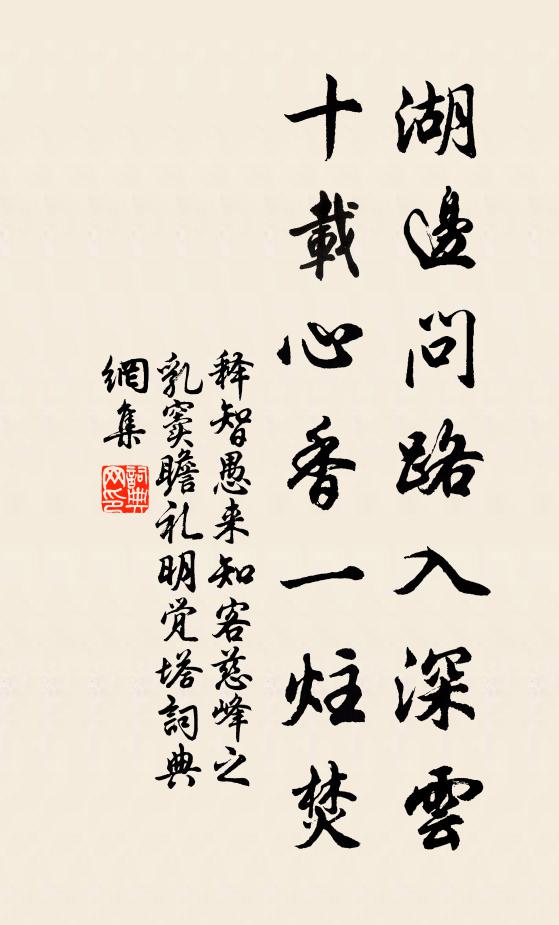 湖邊問路入深雲
十載心香一炷焚
释智愚来知客慈峰之
乳窦瞻礼明觉塔詞典
網集
詞典网印